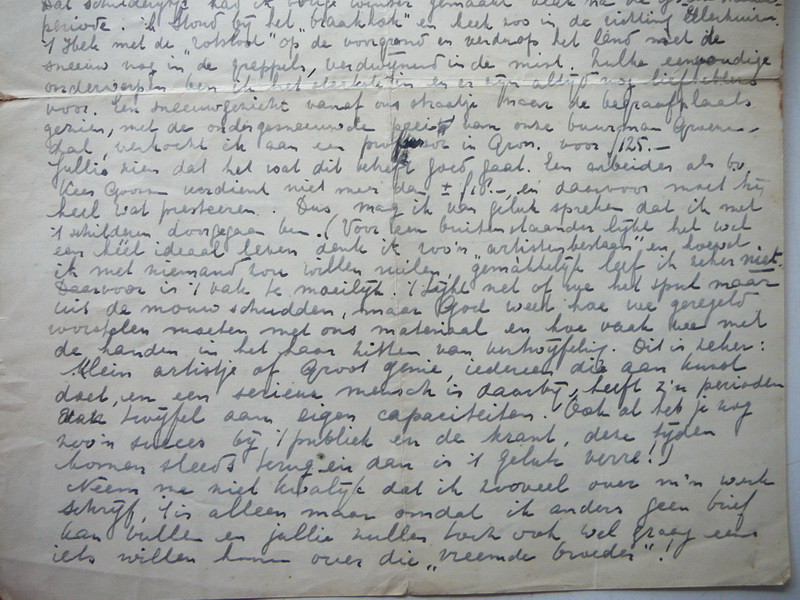 Dat schilderijtje had ik vorige winter gemaakt vlak na de
periode. Ik stond bij het "braakhok" en keek zoo in de richting
't Hek met de "rotstoot" op de voorgrond en verderop het land met de
sneeuw nog in de greppels, verdwijnend in de mist. Zulke eenvoudige
onderwerpen ben ik het sterkste in en er zijn altijd nog liefhebbers
voor. Een sneeuwgezicht vanaf ons straatje naar de begraafplaats
gezien, met de ondergesneeuwde van onze buurman Groene-
dal, verkocht ik aan een professor in Gron. voor ƒ125.-
Jullie zien dat het wat dit betreft goed gaat. Een arbeider als bv.
Kees Goorn verdient niet meer dan ± ƒ10.-, en daarvoor moet hij
heel wat presteeren. Dus, mag ik van geluk spreken dat ik met
't schilderen doorgegaan ben. (Voor een buitenstaander lijkt het wel
een héél ideaal leven denk ik zoo'n "artistenbestaan" en hoewel
ik met niemand zou willen ruilen, "gemakkelijk" leef ik zeker niet.
Daarvoor is 't vak te moeilijk. 't Lijkt net of we het spul maar
uit de mouw schudden, maar God weet hoe we geregeld
worstelen moeten met ons materiaal en hoe vaak we met
de handen in het haar zitten van vertwijfeling. Dit is zeker:
Klein artistje of Groot genie, iedereen die aan kunst
doet, en een serieus mensch is daarbij, heeft z'n perioden
van twijfel aan eigen capaciteiten. Ook al heb je nog
zoo'n succes bij 't publiek en de krant, deze tijden
komen steeds terug en dan is 't geluk verre!)
Neem me niet kwalijk dat ik zooveel over m'n werk
schrijf, 't is alleen maar omdat ik anders geen brief
kan vullen en jullie zullen toch ook wel graag eens
iets willen hooren over die "vreemde broeder"!